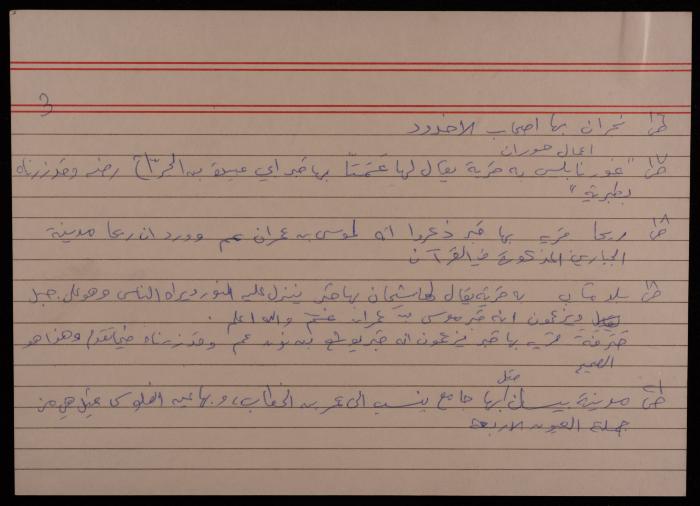 3
ص١٦ نجران بها اصحاب الاخدود
اعمال حوران
ص١٧ "غور نابلس به قرية يقال لها عَمَتَا بها قبر ابي عبيدة بن الجراح رضه وقد زرناه
بطبرية"
ص١٨ ريحا قريه بها قبر ذعروا انه لموسى بن عمران عم وورد ان ريحا مدينة
الجبارين المذكورة في القرآن
ص١٨ بلد مآب به قرية يقال لها شيحان بها قبر ينزل عليه النور ويراه الناس وهو على جبل
ويزعمون انه قبر موسى بن عمران عم والله اعلم.
قرية بها قبر يزعمون انه قبر يوشع بن نون عم وقد زرناه فيما تقدم وهذا هو
الصحيح
ص٢١ مدينة بيسان قيل بها جامع ينسب الى عمر بن الخطاب، وبها عين الفلوس قيل هي من
جملة العيون الاربعة